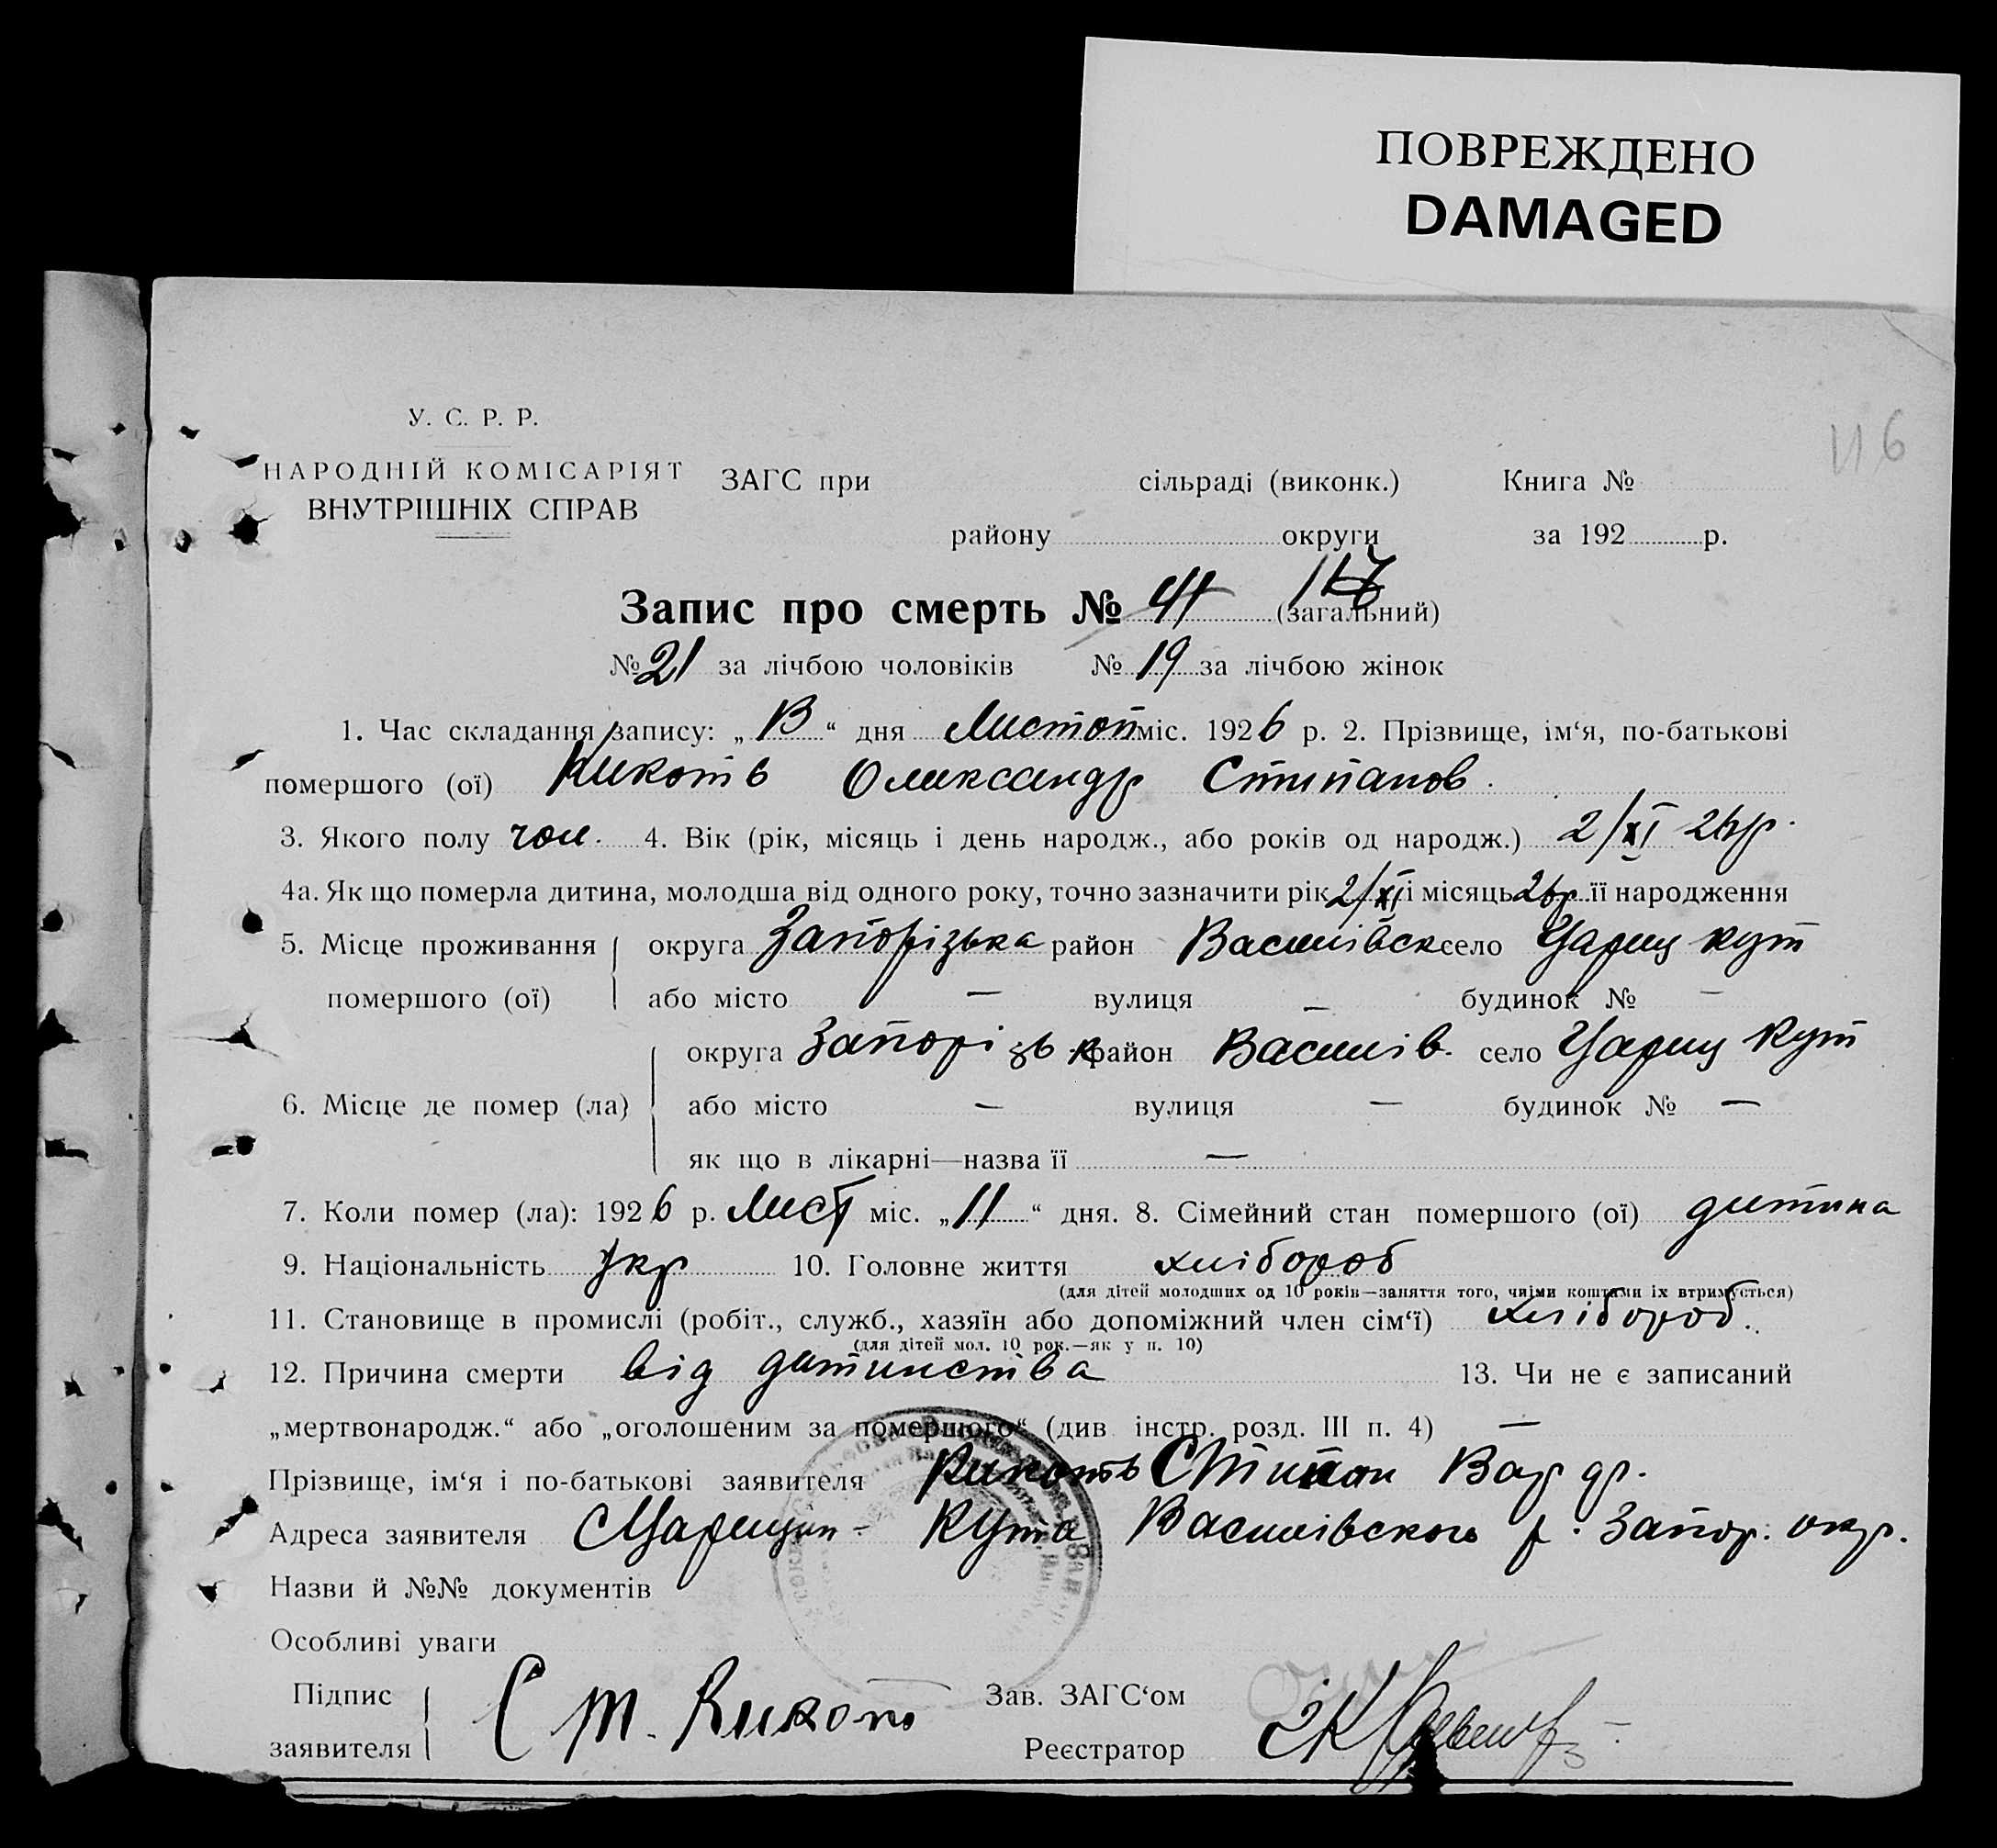 ПОВРЕЖДЕНО
DAMAGED
116
У. С. Р. Р.
НАРОДНІЙ КОМІСАРІЯТ
ВНУТРІШНІХ СПРАВ
ЗАГС при сільраді (виконк.) Книга №
району округи за 192 р.
Запис про смерть № 41 117 (загальний)
№ 21 за лічбою чоловіків № 19 за лічбою жінок
1. Час складання запису: „ 13 “ дня Листоп міс. 1926 р. 2. Прізвище, ім‘я, по-батькові
помершого (ої) Кикоть Олександр Стипанов.
3. Якого полу чол. 4. Вік (рік, місяць і день народж., або років од народж.) 2/XI 26 р.
4а. Як що померла дитина, молодша від одного року, точно зазначити рік 2/XI і місяць 26 р. її народження
5. Місце проживання округа Запорізька район Василівск село Цариц кут
помершого (ої) або місто — вулиця — будинок № —
округа Запорізьк район Василів. село Цариц Кут
6. Місце де помер (ла) або місто — вулиця — будинок № —
як що в лікарні—назва її —
7. Коли помер (ла): 1926 р. Лист міс. „ 11 “ дня. 8. Сімейний стан помершого (ої) дитина
9. Національність Укр 10. Головне життя хлібороб
(для дітей молодших од 10 років—заняття того, чиїми коштами їх втримується)
11. Становище в промислі (робіт., служб., хазяїн або допоміжний член сім‘ї) хлібороб.
(для дітей мол. 10 рок.—як у п. 10)
12. Причина смерти від дитинства 13. Чи не є записаний
„мертвонародж.“ або „оголошеним за помершого“ (див інстр. розд. III п. 4) —
Прізвище, ім‘я і по-батькові заявителя Кикоть Стипан
Адреса заявителя Кута Василівского р. Запор. окр.
Назви й №№ документів
Особливі уваги
Підпис Ст. Кикоть Зав. ЗАГС‘ом
заявителя Реєстратор